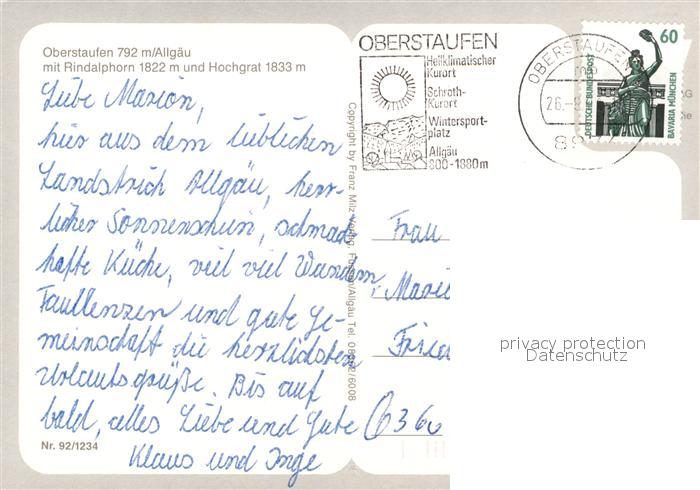 Oberstaufen 792 m/Allgäu
mit Rindalphorn 1822 m und Hochgrat 1833 m
Liebe Marion,
hier aus dem lieblichen
Landstrich Allgäu, herr-
licher Sonnenschein, schmack-
hafte Küche, viel viel Wandern,
Faullenzen und gute Ge-
meinschaft die herzlichsten
Urlaubsgrüße. Bis auf
bald, alles Liebe und Gute
Klaus und Inge
Nr. 92/1234
Copyright by Franz Milz Verlag
OBERSTAUFEN
Heilklimatischer
Kurort
Schroth-
Kurort
Wintersport-
platz
Allgäu
800-1880m
OBERSTAUFEN
26.-9
60
DEUTSCHE BUNDESPOST
BAVARIA MÜNCHEN
Frau
Fried
6360
privacy protection
Datenschutz